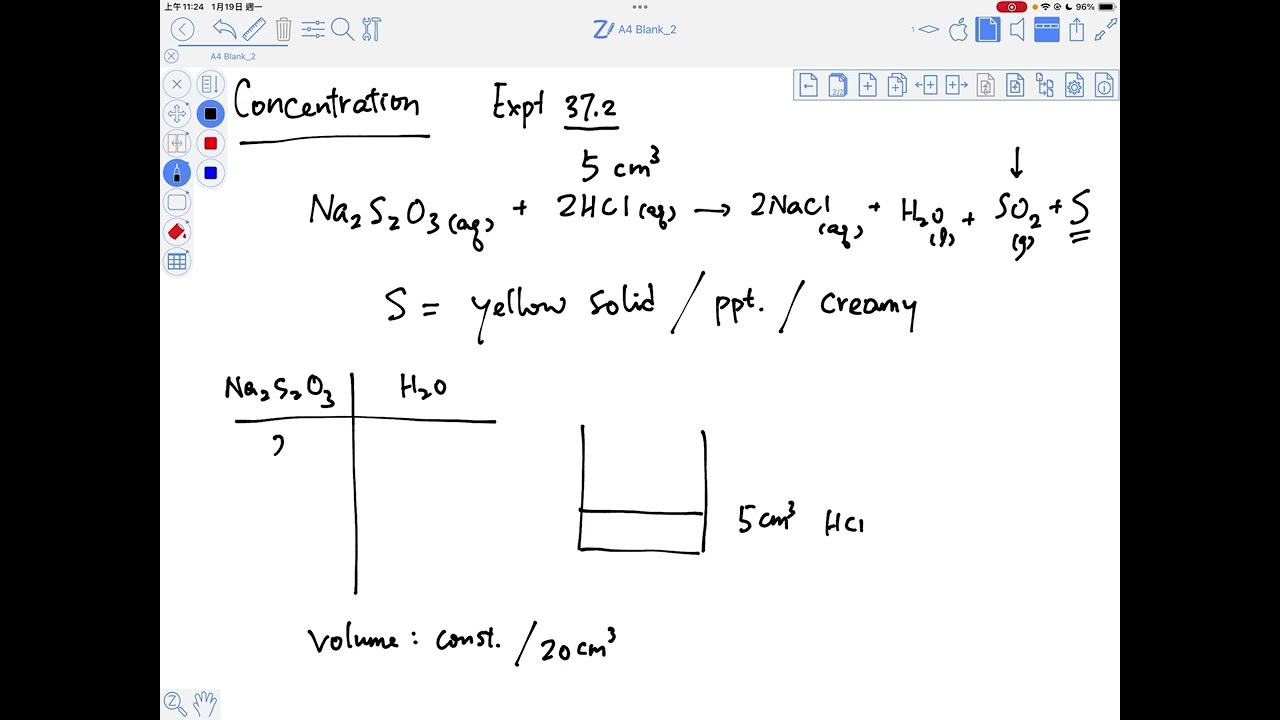 上午11:24 1月19日 週一
96%
A4 Blank_2
A4 Blank_2
Concentration Expt 37.2
5 cm³
↓
Na₂S₂O₃(aq) + 2HCl(aq) → 2NaCl(aq) + H₂O(l) + SO₂(g) + S
S = yellow solid / ppt. / creamy
Na₂S₂O₃ H₂O
5cm³ HCl
Volume : const. / 20 cm³